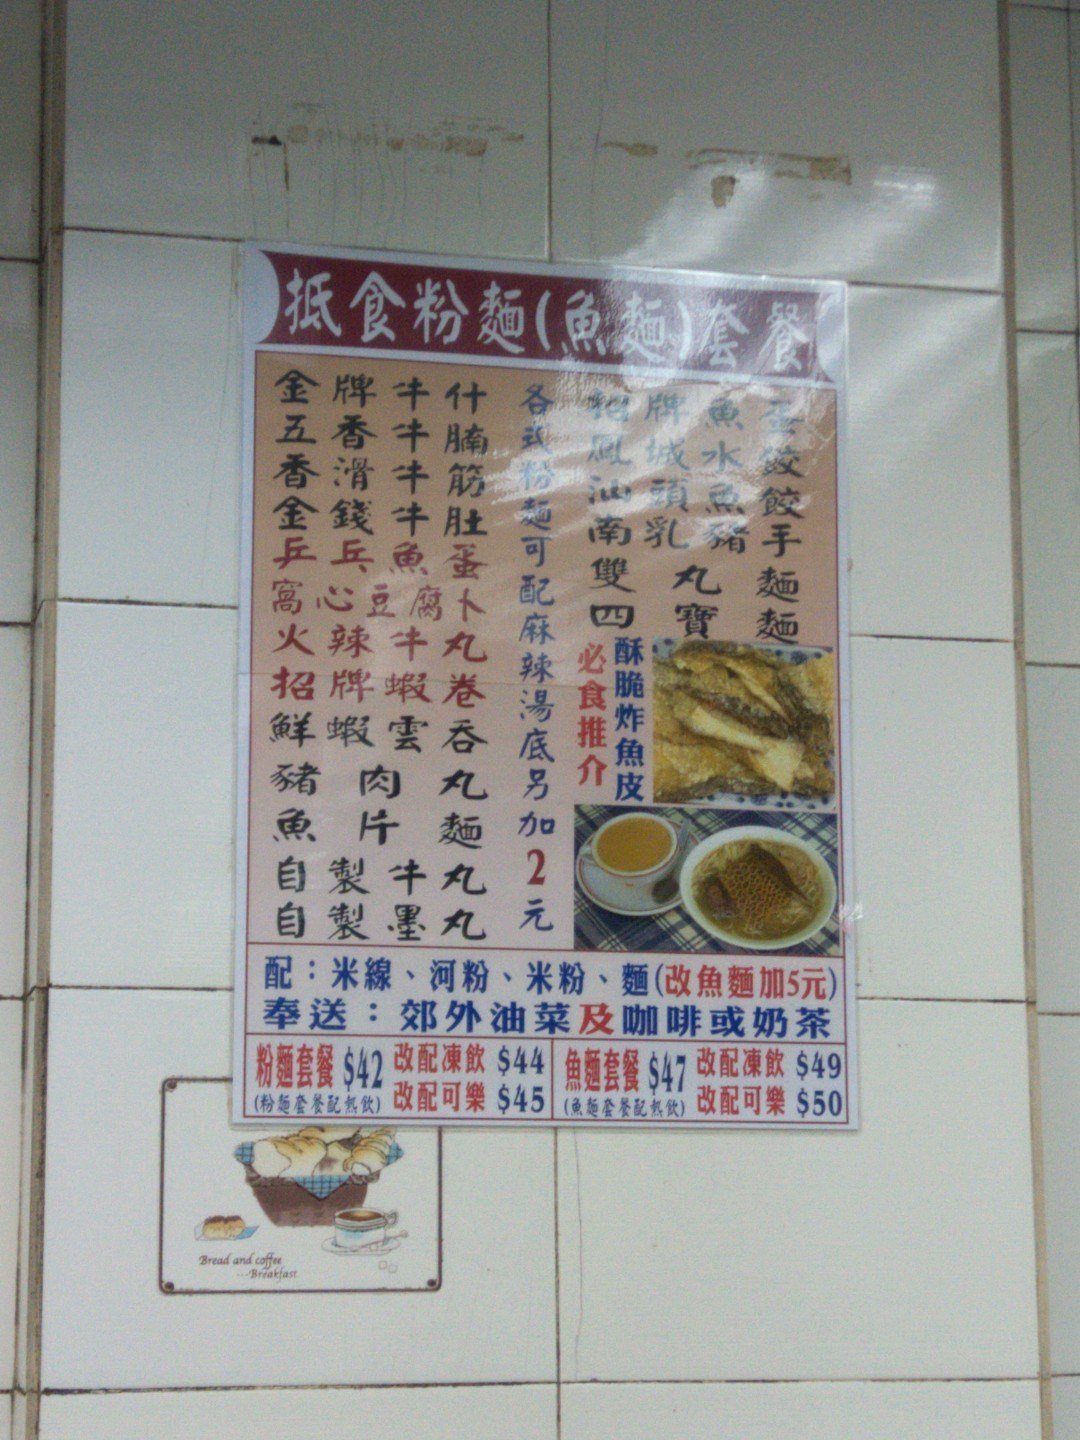 抵食粉麵(魚麵)套餐
金牌牛什
五香牛腩
香滑牛筋
金錢牛肚
乒乓魚蛋
窩心豆腐卜
火辣牛丸
招牌蝦卷
鮮蝦雲吞
豬肉丸
魚片麵
自製牛丸
自製墨丸
各式粉麵可配麻辣湯底另加2元
招牌魚蛋
鳳城水餃
汕頭魚餃
南乳豬手
雙丸麵
四寶麵
酥脆炸魚皮
必食推介
配：米線、河粉、米粉、麵(改魚麵加5元)
奉送：郊外油菜及咖啡或奶茶
粉麵套餐 $42
(粉麵套餐配熱飲)
改配凍飲 $44
改配可樂 $45
魚麵套餐 $47
(魚麵套餐配熱飲)
改配凍飲 $49
改配可樂 $50
Bread and coffee
...Breakfast